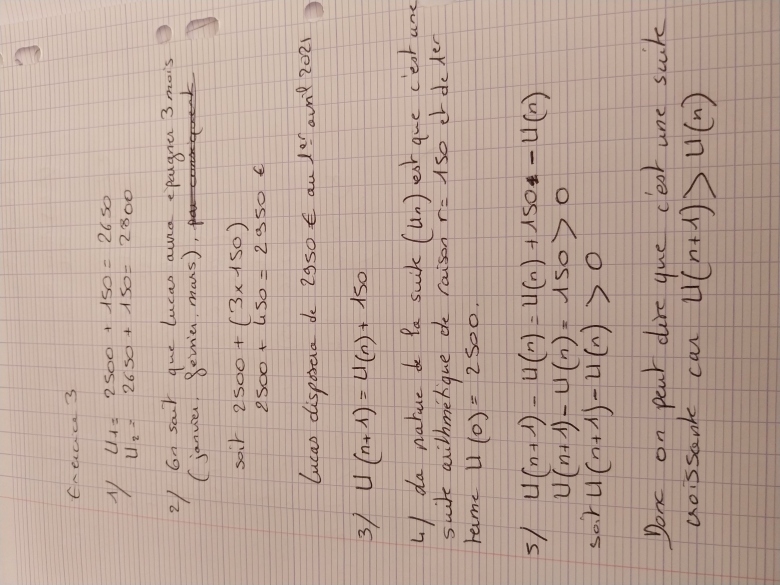 Exercice 3
1/ U1 = 2500 + 150 = 2650
U2 = 2650 + 150 = 2800
2/ On sait que Lucas aura épargner 3 mois
(janvier, février, mars), par conséquent
soit 2500 + (3 x 150)
2500 + 450 = 2950 €
Lucas disposera de 2950 € au 1er avril 2021
3/ U(n+1) = U(n) + 150
4/ La nature de la suite (Un) est que c'est une
suite arithmétique de raison r = 150 et de 1er
terme U(0) = 2500.
5/ U(n+1) - U(n) = U(n) + 150 - U(n)
U(n+1) - U(n) = 150 > 0
soit U(n+1) - U(n) > 0
Donc on peut dire que c'est une suite
croissante car U(n+1) > U(n)